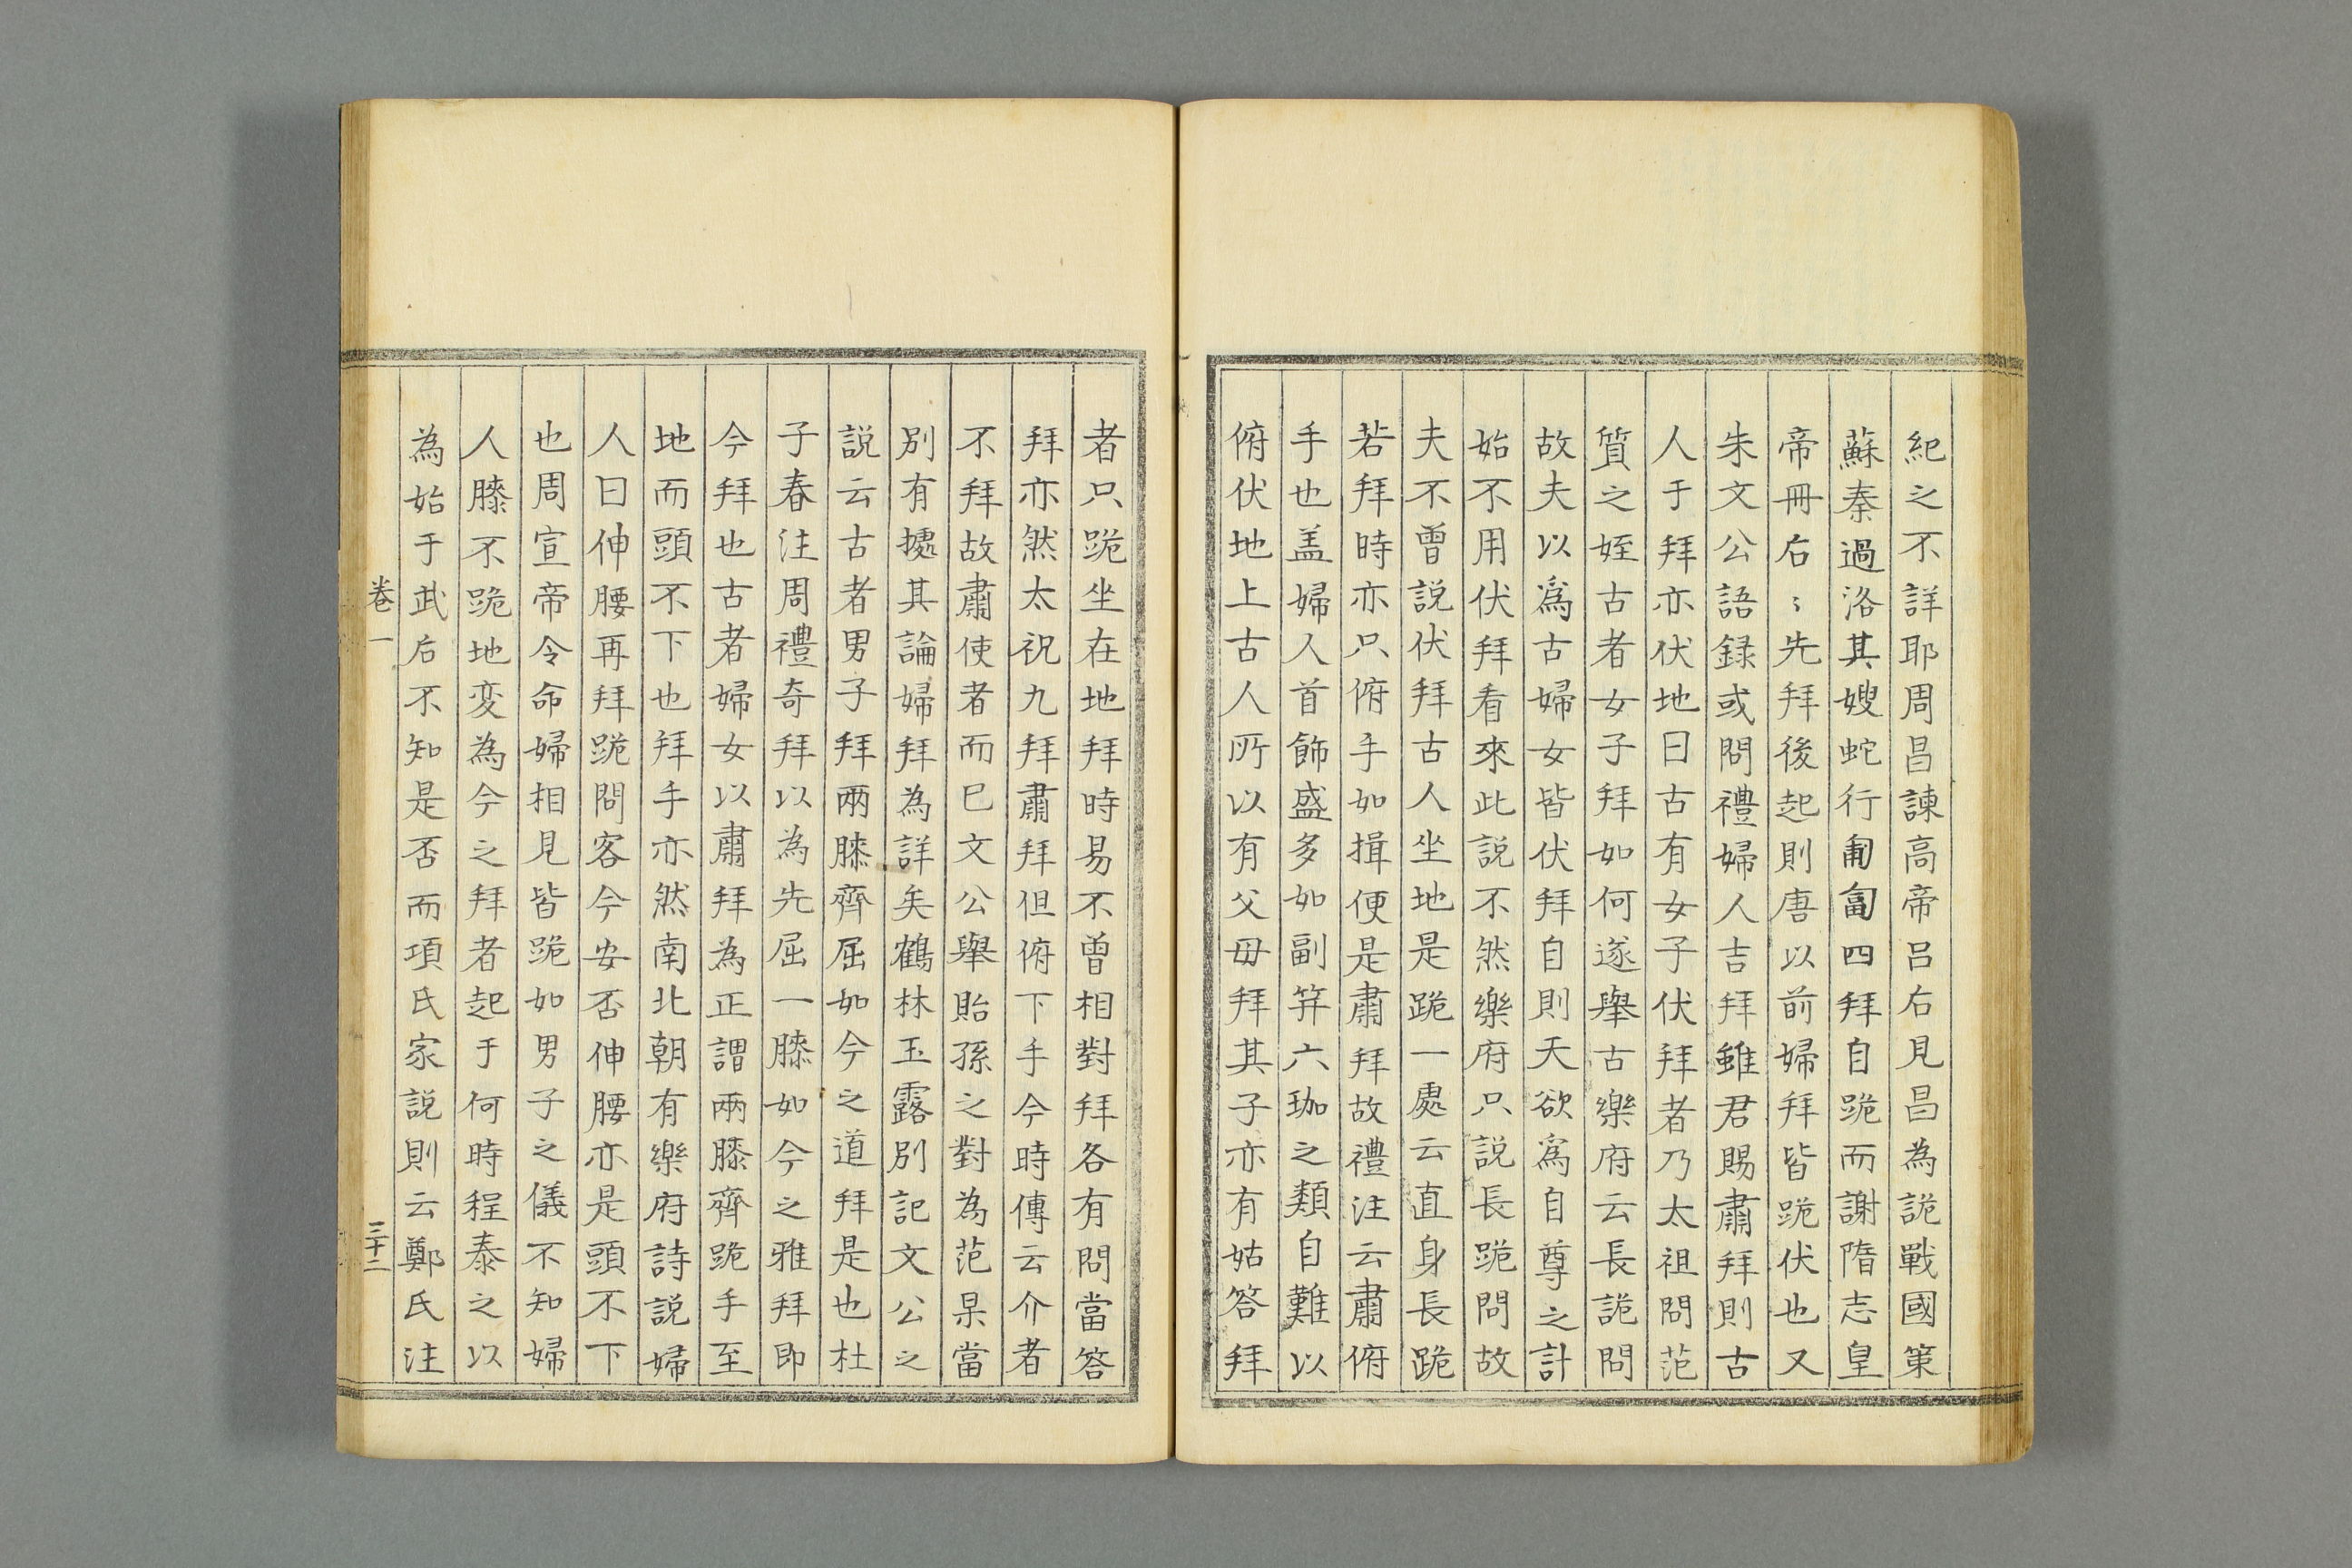 紀之不詳耶周昌諫高帝呂后見昌為詭戰國策
蘇秦過洛其嫂蛇行匍匐四拜自跪而謝隋志皇
帝冊后〻先拜後起則唐以前婦拜皆跪伏也又
朱文公語録或問禮婦人吉拜雖君賜肅拜則古
人于拜亦伏地曰古有女子伏拜者乃太祖問范
質之姪古者女子拜如何遂舉古樂府云長詭問
故夫以爲古婦女皆伏拜自則天欲爲自尊之計
始不用伏拜看來此説不然樂府只説長跪問故
夫不曽説伏拜古人坐地是跪一處云直身長跪
若拜時亦只俯手如揖便是肅拜故禮注云肅俯
手也盖婦人首飾盛多如副笄六珈之類自難以
俯伏地上古人所以有父毋拜其子亦有姑答拜
者只跪坐在地拜時易不曽相對拜各有問當答
拜亦然太祝九拜肅拜但俯下手今時傳云介者
不拜故肅使者而巳文公舉貽孫之對為范杲當
別有㨿其論婦拜為詳矣鶴林玉露別記文公之
説云古者男子拜兩膝齊屈如今之道拜是也杜
子春注周禮奇拜以為先屈一膝如今之雅拜即
今拜也古者婦女以肅拜為正謂兩膝齊跪手至
地而頭不下也拜手亦然南北朝有樂府詩説婦
人曰伸腰再拜跪問客今安否伸腰亦是頭不下
也周宣帝令命婦相見皆跪如男子之儀不知婦
人膝不跪地変為今之拜者起于何時程泰之以
為始于武后不知是否而項氏家説則云鄭氏注
卷一
三十二